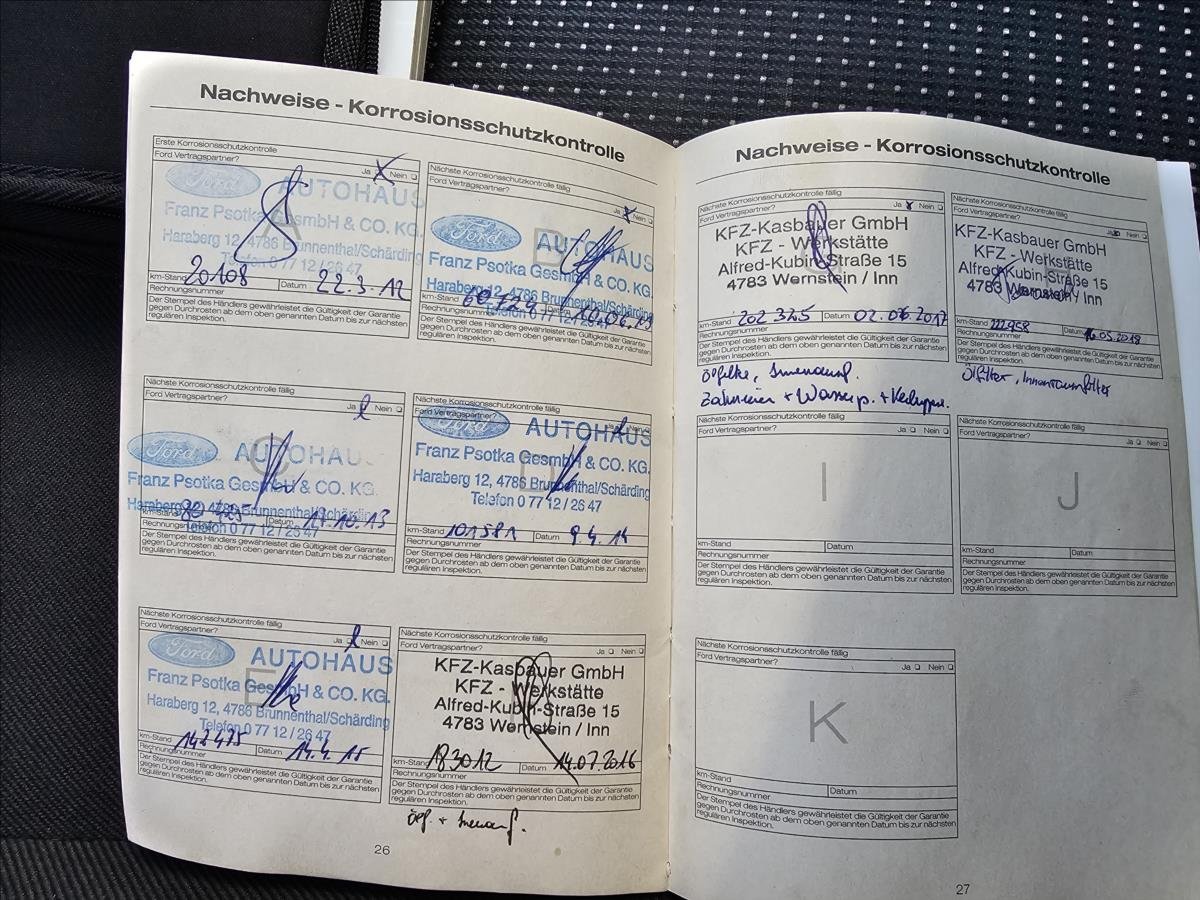 Nachweise - Korrosionsschutzkontrolle
Erste Korrosionsschutzkontrolle
Ford Vertragspartner?
Ja Nein
Ford AUTOHAUS
A
Franz Psotka GesmbH & CO. KG.
Haraberg 12, 4786 Brunnenthal/Schärding
Telefon 0 77 12 / 26 47
km-Stand 20108 Datum 22.3.12
Rechnungsnummer
Der Stempel des Händlers gewährleistet die Gültigkeit der Garantie
gegen Durchrosten ab dem oben genannten Datum bis zur nächsten
regulären Inspektion.
Nächste Korrosionsschutzkontrolle fällig
Ford Vertragspartner?
Ja Nein
Ford AUTOHAUS
B
Franz Psotka GesmbH & CO. KG.
Haraberg 12, 4786 Brunnenthal/Schärding
Telefon 0 77 12 / 26 47
km-Stand Datum
Rechnungsnummer
Der Stempel des Händlers gewährleistet die Gültigkeit der Garantie
gegen Durchrosten ab dem oben genannten Datum bis zur nächsten
regulären Inspektion.
Nächste Korrosionsschutzkontrolle fällig
Ford Vertragspartner?
Ja Nein
Ford AUTOHAUS
C
Franz Psotka GesmbH & CO. KG.
Haraberg 12, 4786 Brunnenthal/Schärding
Telefon 0 77 12 / 26 47
km-Stand Datum
Rechnungsnummer
Der Stempel des Händlers gewährleistet die Gültigkeit der Garantie
gegen Durchrosten ab dem oben genannten Datum bis zur nächsten
regulären Inspektion.
Nächste Korrosionsschutzkontrolle fällig
Ford Vertragspartner?
Ford AUTOHAUS
D
Franz Psotka GesmbH & CO. KG.
Haraberg 12, 4786 Brunnenthal/Schärding
Telefon 0 77 12 / 26 47
km-Stand 101581 Datum 9.4.14
Rechnungsnummer
Der Stempel des Händlers gewährleistet die Gültigkeit der Garantie
gegen Durchrosten ab dem oben genannten Datum bis zur nächsten
regulären Inspektion.
Nächste Korrosionsschutzkontrolle fällig
Ford Vertragspartner?
Ja Nein
Ford AUTOHAUS
E
Franz Psotka GesmbH & CO. KG.
Haraberg 12, 4786 Brunnenthal/Schärding
Telefon 0 77 12 / 26 47
km-Stand 142475 Datum 14.4.15
Rechnungsnummer
Der Stempel des Händlers gewährleistet die Gültigkeit der Garantie
gegen Durchrosten ab dem oben genannten Datum bis zur nächsten
regulären Inspektion.
Nächste Korrosionsschutzkontrolle fällig
Ford Vertragspartner?
Ja Nein
KFZ-Kasbauer GmbH
KFZ - Werkstätte
Alfred-Kubin-Straße 15
4783 Wernstein / Inn
km-Stand 183012 Datum 14.07.2016
Rechnungsnummer
Der Stempel des Händlers gewährleistet die Gültigkeit der Garantie
gegen Durchrosten ab dem oben genannten Datum bis zur nächsten
regulären Inspektion.
26
Nachweise - Korrosionsschutzkontrolle
Nächste Korrosionsschutzkontrolle fällig
Ford Vertragspartner?
Ja x Nein
KFZ-Kasbauer GmbH
KFZ - Werkstätte
Alfred-Kubin-Straße 15
4783 Wernstein / Inn
km-Stand 202 325 Datum 02.06.2017
Rechnungsnummer
Der Stempel des Händlers gewährleistet die Gültigkeit der Garantie
gegen Durchrosten ab dem oben genannten Datum bis zur nächsten
regulären Inspektion.
Zahnriemen + Wasserp. +
Nächste Korrosionsschutzkontrolle fällig
Ford Vertragspartner?
Ja Nein
KFZ-Kasbauer GmbH
KFZ - Werkstätte
Alfred-Kubin-Straße 15
4783 Wernstein / Inn
km-Stand 222958 Datum 16.05.2018
Rechnungsnummer
Der Stempel des Händlers gewährleistet die Gültigkeit der Garantie
gegen Durchrosten ab dem oben genannten Datum bis zur nächsten
regulären Inspektion.
Ölfilter, Innenraumfilter
Nächste Korrosionsschutzkontrolle fällig
Ford Vertragspartner?
Ja Nein
I
km-Stand Datum
Rechnungsnummer
Der Stempel des Händlers gewährleistet die Gültigkeit der Garantie
gegen Durchrosten ab dem oben genannten Datum bis zur nächsten
regulären Inspektion.
Nächste Korrosionsschutzkontrolle fällig
Ford Vertragspartner?
Ja Nein
J
km-Stand Datum
Rechnungsnummer
Der Stempel des Händlers gewährleistet die Gültigkeit der Garantie
gegen Durchrosten ab dem oben genannten Datum bis zur nächsten
regulären Inspektion.
Nächste Korrosionsschutzkontrolle fällig
Ford Vertragspartner?
Ja Nein
K
km-Stand
Rechnungsnummer Datum
Der Stempel des Händlers gewährleistet die Gültigkeit der Garantie
gegen Durchrosten ab dem oben genannten Datum bis zur nächsten
regulären Inspektion.
27